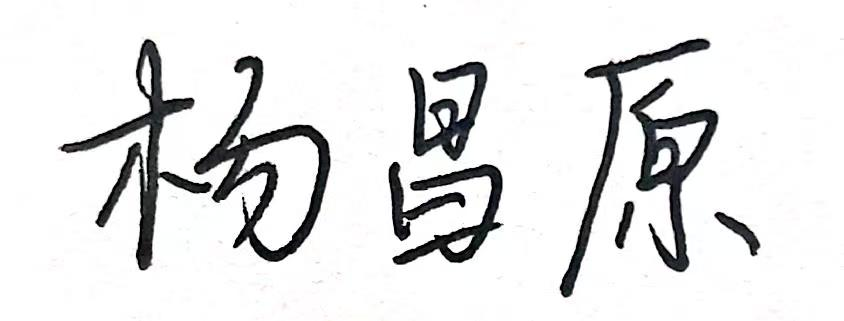 杨昌原